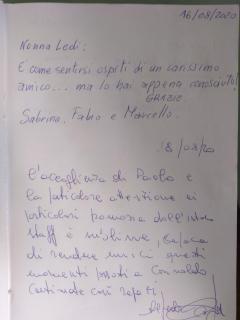 16/08/2020
Nonna Ledi:
E come sentirsi ospiti di un carissimo
amico... ma lo hai appena conosciuto!
GRAZIE
Sabrina, Fabio e Marcello.
18/08/20
L'accoglienza di Paolo e
la particolare attenzione ai
particolari dall'intero
staff è sublime, capace
di rendere unici questi
momenti passati a Corinaldo
Continuate così